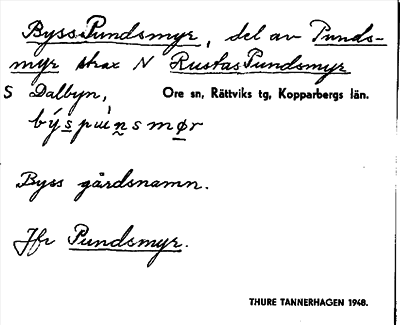 Byss Pundsmyr, del av Punds-
myr strax N Rustas Pundsmyr
S Dalbyn, Ore sn, Rättviks tg, Kopparbergs län.
Byss gårdsnamn.
Jfr Pundsmyr.
THURE TANNERHAGEN 1948.